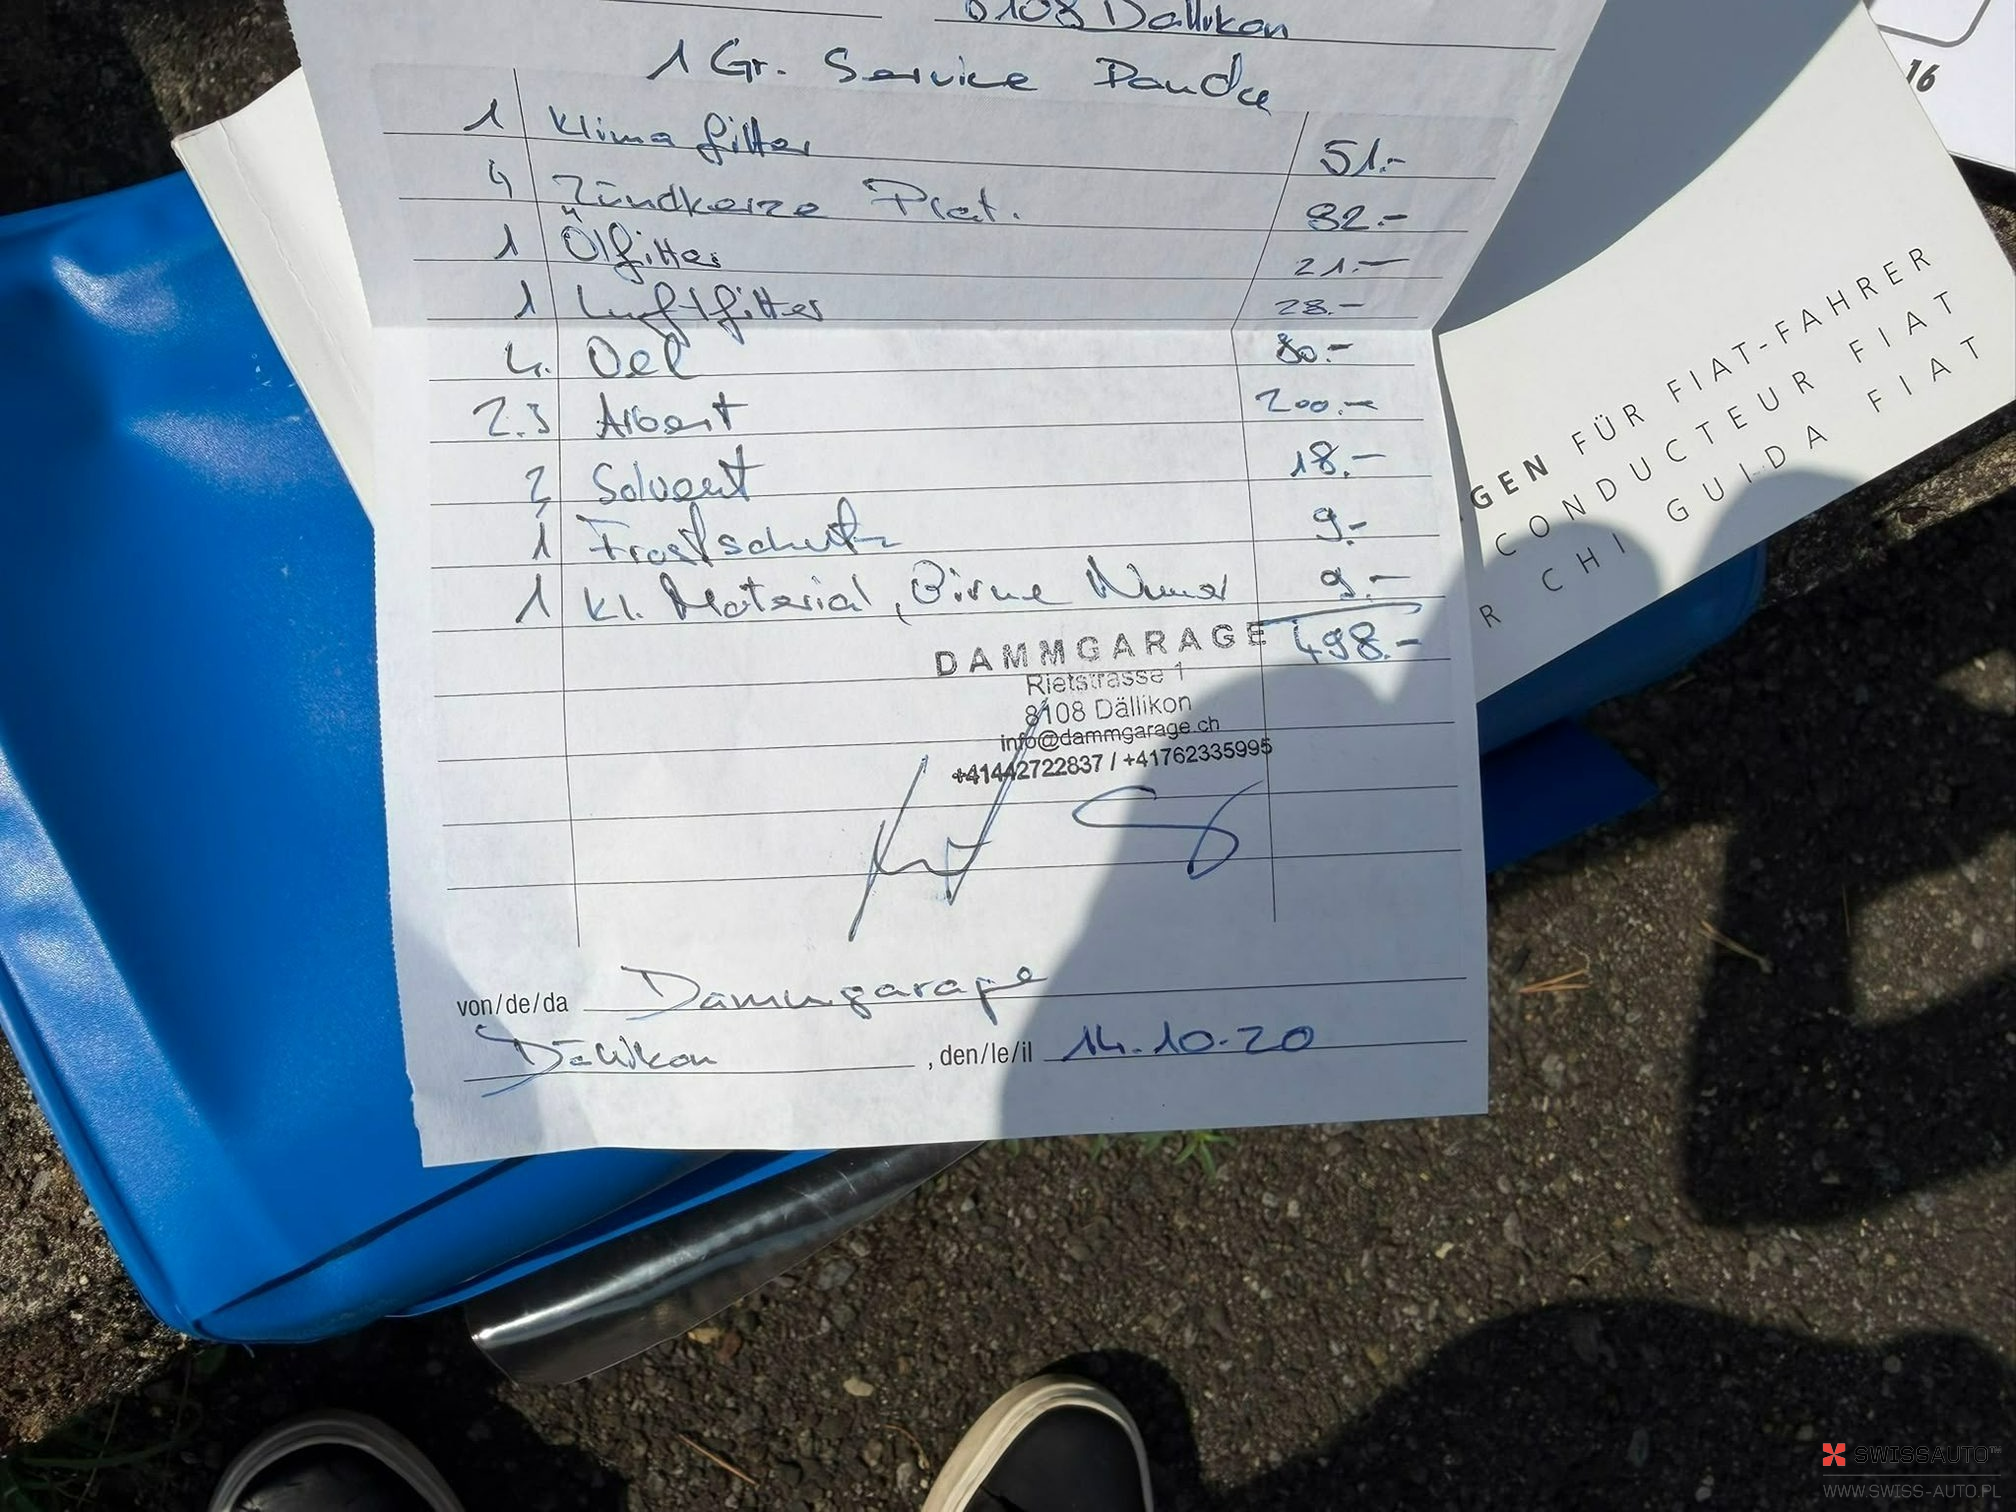 8108 Dällikon
1 Gr. Service Panda
1 Klimafilter 51.-
4 Zündkerze Plat. 82.-
1 Ölfilter 21.-
1 Luftfilter 28.-
4. Oel 80.-
2.5 Arbeit 200.-
2 Solvent 18.-
1 Frostschutz 9.-
1 Kl. Material, Birne Numer 9.-
498.-
DAMMGARAGE
Rietstrasse 1
8108 Dällikon
info@dammgarage.ch
+41442722837 / +41762335995
von/de/da Dammgarage
Dällikon , den/le/il 14.10.20
16
GEN FÜR FIAT-FAHRER
CONDUCTEUR FIAT
R CHI GUIDA FIAT
SWISSAUTO
WWW.SWISS-AUTO.PL